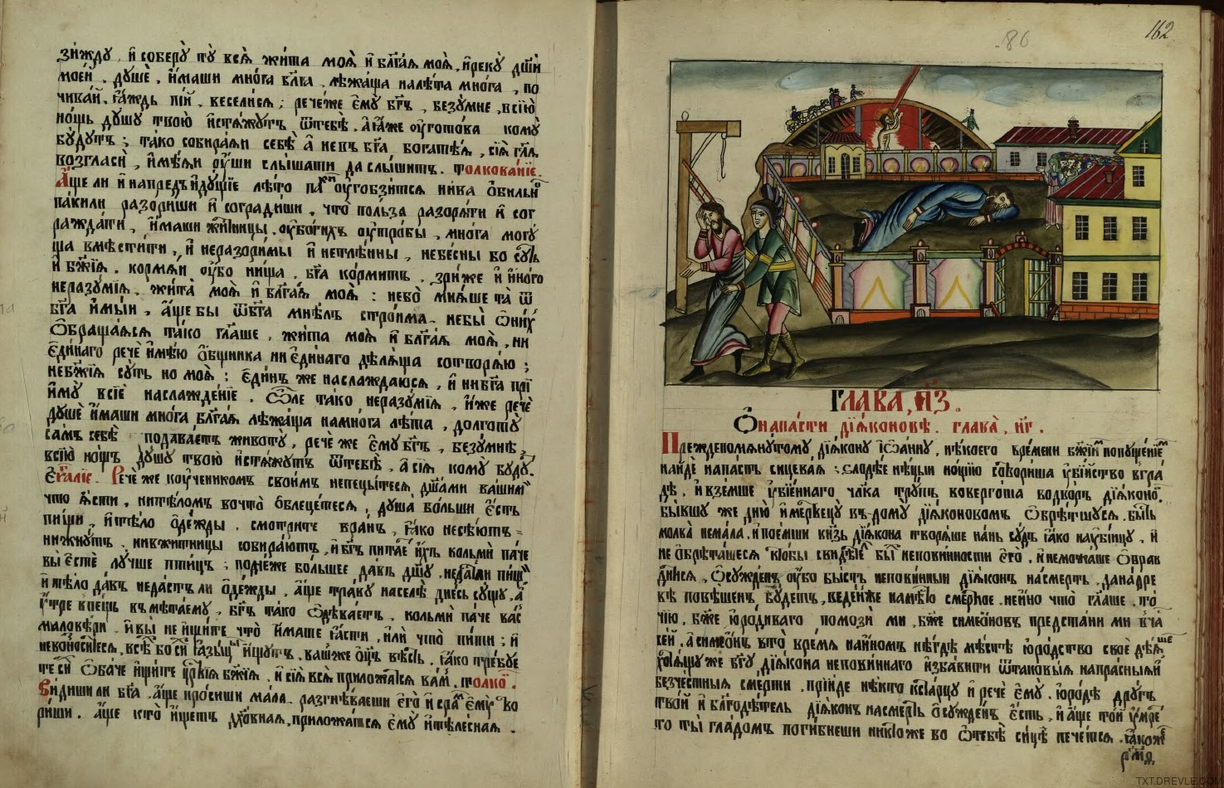 зи́жду и҆ соберу̀ ту̀ всѧ̑ жи́та моѧ̑ и҆ бл҃га́ѧ моѧ̑. и҆ реку̀ дш҃и
мое́й. душѐ, и҆́маши мно́га бл҃га, лежа́ща на лѣ́та мно́га, по
чива́й. ꙗ҆́ждь пі́й. весели́сѧ; рече́ же є҆му̀ бг҃ъ, безу́мне, в сїю̀
но́щь ду́шу твою̀ и҆стѧ́жутъ ѿ тебѐ. а҆ ꙗ҆́же оу҆гото́ва кому̀
бу́дутъ; та́ко собира́ѧй себѣ̀ а҆ не в бг҃а богатѣ́ѧ, сїѧ̑ гл҃ѧ
возгласѝ, и҆мѣ́ѧй оу҆́ши слы́шати да слы́шитъ. толкова́нїе.
А҆́ще ли и҆ напредъ и҆ду́щїе лѣ́то оу҆гобзи́тсѧ ни́ва ѻ҆би́льно
па́ки ли разори́ши и҆ согради́ши. что̀ по́льза разорѧ́ти и҆ сог
ражда́ти, и҆́маши жи́тницы. оу҆бо́гихъ оу҆тро́бы, мно́га могу́
ща вмѣсти́ти, и҆ неразори́мы и҆ нетлѣ́нны, небе́сны во су́ть
и҆ бж҃їѧ. кормѧ́й оу҆́бо ни́ща, бг҃а ко́рмитъ. зри́ же и҆ и҆но́го
неразу́мїѧ. жи́та моѧ̑ и҆ бл҃га́ѧ моѧ̑: не бо̀ мнѧ́ше та̀ ѿ
бг҃а и҆мы́й, а҆́ще бы ѿ бг҃а мнѣ́лъ строи́ма. не бы̀ ѡ҆ ни́хъ
ѻ҆браща́ѧсѧ та́ко гл҃аше, жи́та моѧ̑ и҆ бл҃га́ѧ моѧ̑, ни
є҆ди́наго речѐ и҆мѣ́ю ѻ҆́бщника ни є҆ди́наго дѣ́лѧща сотворѧ́ю;
не бж҃їѧ су́ть но моѧ̑: є҆ди́нъ же наслажда́юсѧ, и҆ ни бг҃а прїи
и҆му̀ в сїѐ наслажде́нїе. Ѽле та́ко неразу́мїѧ, и҆́же речѐ
душѐ и҆́маши мно́га бл҃га́ѧ лежа́ща на мно́га лѣ́та, долготу̀
са́мъ себѣ̀ подава́етъ животу̀, рече́ же є҆му̀ бг҃ъ, безу́мне,
в сїю̀ но́щь ду́шу твою̀ и҆стѧ́жутъ ѿ тебѐ, а҆ сїѧ̑ кому̀ бу́ду.
Є҆ѵⷢ҇лїе. Рече́ же ко оу҆ченико́мъ свои́мъ не пецы́тесѧ, дш҃а́ми ва́шими
что̀ ꙗ҆́сти, ни тѣ́ломъ во что̀ ѡ҆блеце́тесѧ, душа̀ бо́льши є҆́сть
пи́щи, и҆ тѣ́ло ѻ҆де́жды. смотри́те вра́нъ, ꙗ҆́ко не сѣ́ютъ
ни жну́тъ, ни в жи́тницы собира́ютъ, и҆ бг҃ъ пита́е и҆́хъ кольмѝ па́че
вы̀ є҆стѐ лу́чше пти́цъ; поне́же бо́льшее да́въ дш҃у, не да́сть ли пи́щи
и҆ тѣ́ло да́въ не да́сть ли ѻ҆де́жды, а҆́ще траву̀ на селѣ̀ дне́сь су́щу, а҆
оу҆́тре в пе́щь вмета́ему, бг҃ъ та́ко ѻ҆дѣва́етъ, кольмѝ па́че ва́съ
малове́ри. и҆ вы̀ не и҆щи́те, что̀ и҆́маше ꙗ҆́сти, и҆лѝ что̀ пи́ти; и҆
не возноси́тесѧ, всѣ́хъ бо си́хъ ꙗ҆зы́цы и҆́щутъ. ва́шъ же ѻ҆ц҃ъ вѣ́сть, ꙗ҆́ко тре́бує
те си́хъ ѻ҆ба́че и҆щи́те црⷭ҇твїѧ бж҃їѧ, и҆ сїѧ̑ всѧ̑ приложа́тсѧ ва́мъ. толко.
Ви́диши ли бг҃а. а҆́ще про́сиши ма́ла, разгнѣва́еши є҆го̀ и҆ є҆му̀ ᲂуко
ри́ши. а҆́ще кто̀ и҆́щетъ дх҃о́внаѧ, приложа́тсѧ є҆му̀ и҆ тѣле́снаѧ.
86
162
ГЛАВА, н҃з.
Ѡ҆ напа́сти дїѧ́коновѣ. глава̀, н҃г.
Преждепомѧну́тому, дїѧ́кону і҆ѡа́нну, нѣ́коего вре́мени бж҃їимъ попуще́нїемъ
на́йде напа́сть сицева́ѧ: злодѣ́е нѣ́цыи но́щїю сотвори́ша оу҆бі́йство в гра
дѣ, и҆ взе́мше оу҆бїе́ннаго чл҃ка тру́пъ воверго́ша во дво́ръ дїѧ́коно.
бы́вшу же дню̀ и҆ мертвецу̀ в дому̀ дїѧ́коновомъ ѻ҆брѣ́тшусѧ. бы́сть
молва̀ нема́ла. и҆ пое́мши кнѧ́зь дїѧ́кона творѧ́ше на́нь су́дъ ꙗ҆́ко на оу҆бі́йцу, и҆
не ѻ҆брѣта́шесѧ кто̀ бы свидѣ́тель бы́лъ непови́нности є҆го̀. и҆ не мого́ше ѡ҆прав
ди́тисѧ, ѻ҆сужде́нъ оу҆́бо бы́сть непови́нный дїѧ́конъ на сме́рть. да на дре
вѣ повѣ́шенъ бу́детъ, веде́нъ же на мѣ́сто сме́ртное. не и҆́но что̀ гл҃аше. то́
чїю, бж҃е ю҆ро́диваго помозѝ мѝ, бж҃е сѵмеѡ́новъ предста́ни мѝ в ча́съ
се́й. а҆ сѵмеѡ́нъ в то̀ вре́мѧ на и҆но́мъ нѣ́гдѣ мѣ́сте ю҆ро́дство своѐ дѣ́ѧше
хотѧ́щу же бг҃у дїѧ́кона непови́ннаго и҆зба́вити ѿ таковы́ѧ напра́сныѧ и҆
безче́стныѧ сме́рти. прїи́де нѣ́кто к ста́рцу и҆ речѐ є҆му̀. ю҆ро́де дру́гъ
тво́й и҆ благодѣ́тель дїѧ́конъ на сме́рть ѻ҆сужде́нъ є҆́сть, и҆ а҆́ще то́й оу҆́мре
то ты̀ гла́домъ поги́бнеши никто́же бо ѡ҆ тебѣ̀ си́це пече́тсѧ. ꙗ҆́коже
TXT.DREVLE.COM